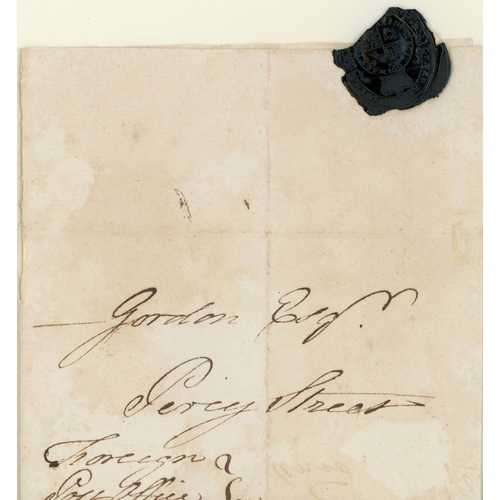 — Gordon Esqr.
Percy Street
Foreign
Post Office